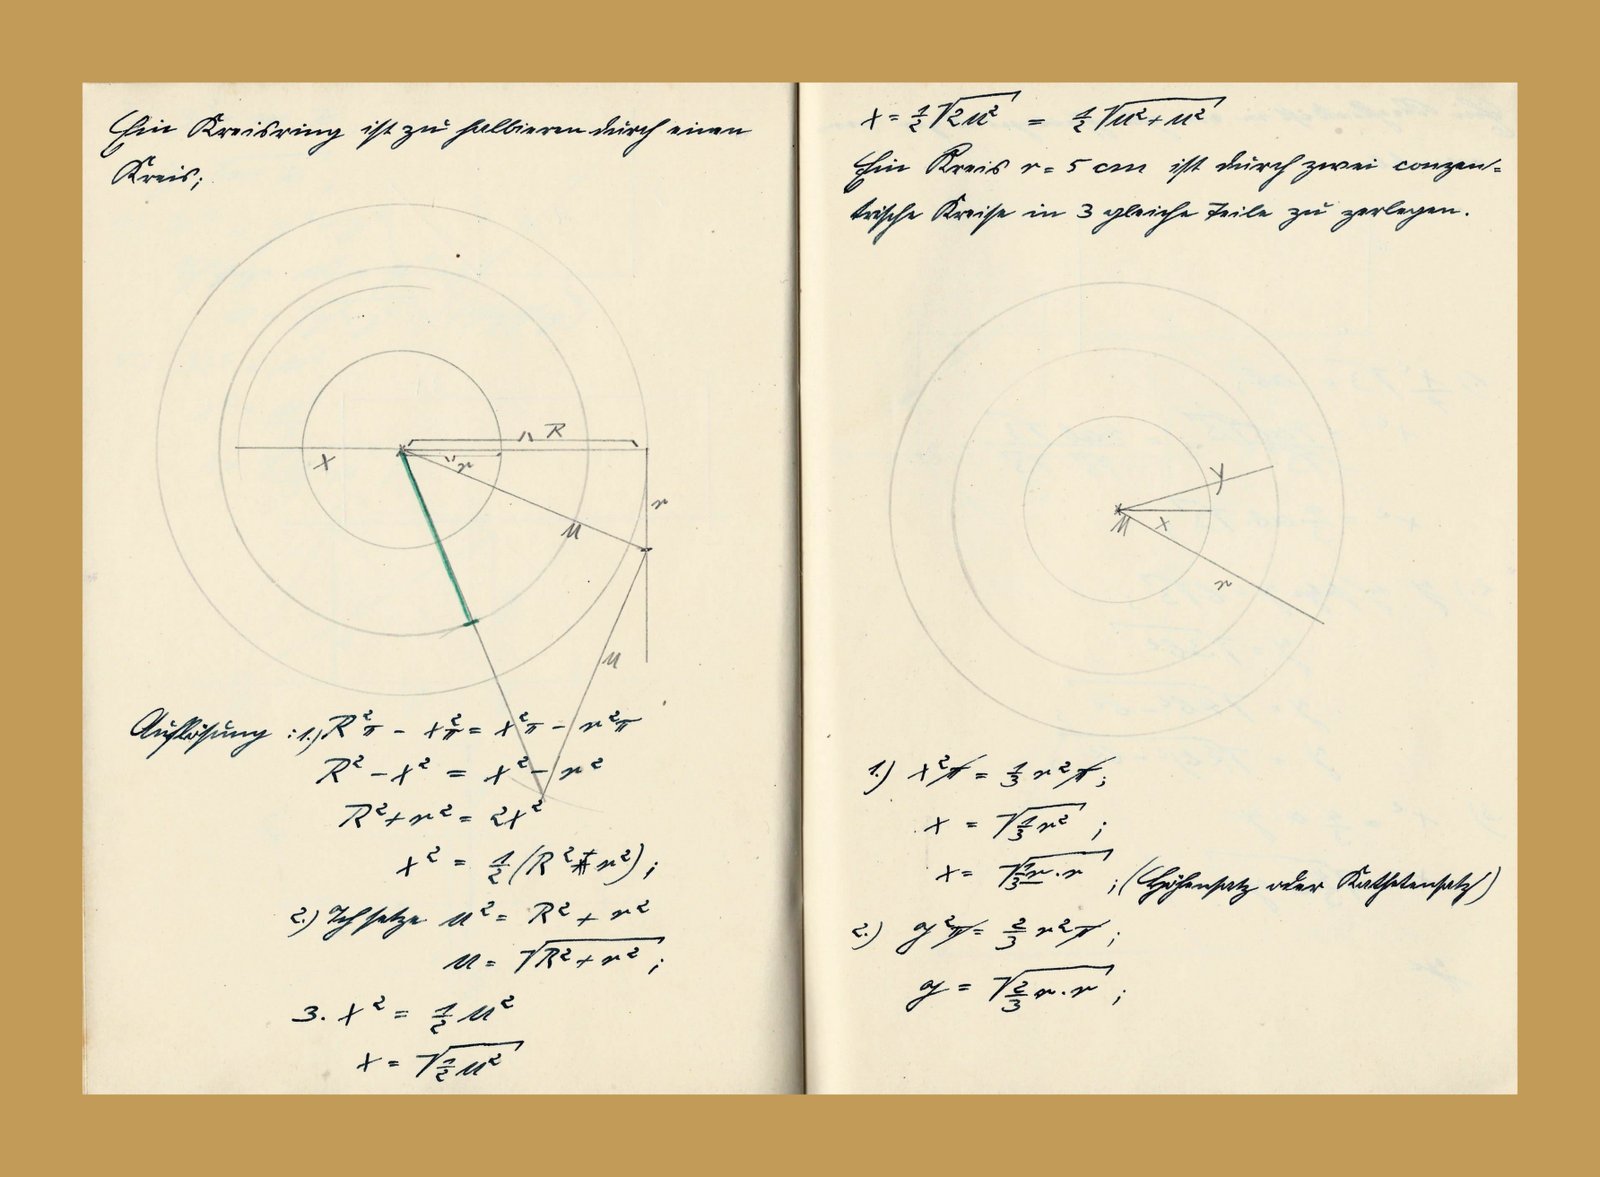 Ein Kreisring ist zu halbieren durch einen
Kreis;
R
r
x
r
u
u
Auflösung : 1.) R²π - x²π = x²π - r²π
R² - x² = x² - r²
R² + r² = 2x²
x² = ½ (R² + r²) ;
2.) Ich setze u² = R² + r²
u = √(R² + r²) ;
3. x² = ½ u²
x = √(½ u²)
x = ½ √(2u²) = ½ √(u² + u²)
Ein Kreis r = 5 cm ist durch zwei conzen=
trische Kreise in 3 gleiche Teile zu zerlegen.
y
M
x
r
1.) x²π = ⅓ r²π ;
x = √(⅓ r²) ;
x = √(⅓ r · r) ; (Höhensatz oder Kathetensatz)
2.) y²π = ⅔ r²π ;
y = √(⅔ r · r) ;